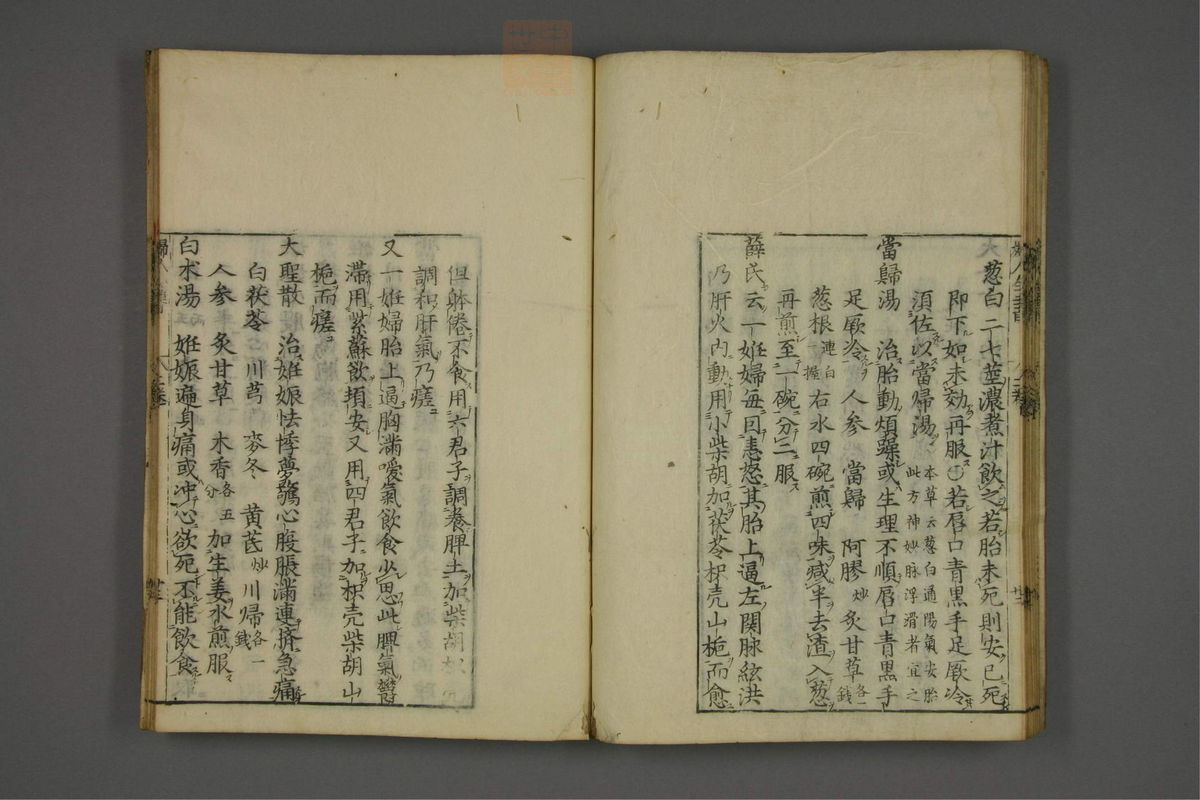 葱白 二七莖濃煮汁飲之若胎未死則安已死
即下如未効再服○若唇口青黒手足厥冷
須佐以當帰湯 本草云葱白通陽氣安胎
此方神妙脉浮滑者宜之
當歸湯 治胎動煩躁或生理不順唇口青黒手
足厥冷 人参 當歸 阿膠炒 炙甘草各一錢
葱根連白一握 右水四碗煎四味减半去渣入葱
再煎至一碗分三服
薛氏云一妊婦毎因恚怒其胎上逼左関脉絃洪
乃肝火内動用小柴胡加茯苓枳壳山梔而愈
但躰倦不食用六君子調養脾土加柴胡
調和肝氣乃瘥
又一妊婦胎上逼胸滿噯氣飲食少思此脾氣欝
滞用紫蘇飲頓安又用四君子加枳壳柴胡山
梔而瘥
大聖散 治妊娠怯悸夢驚心腹脹滿連臍急痛
白茯苓 川芎 麥冬 黄芪炒 川帰各一錢
人参 炙甘草 木香各五分 加生姜水煎服
白朮湯 妊娠遍身痛或冲心欲死不能飲食